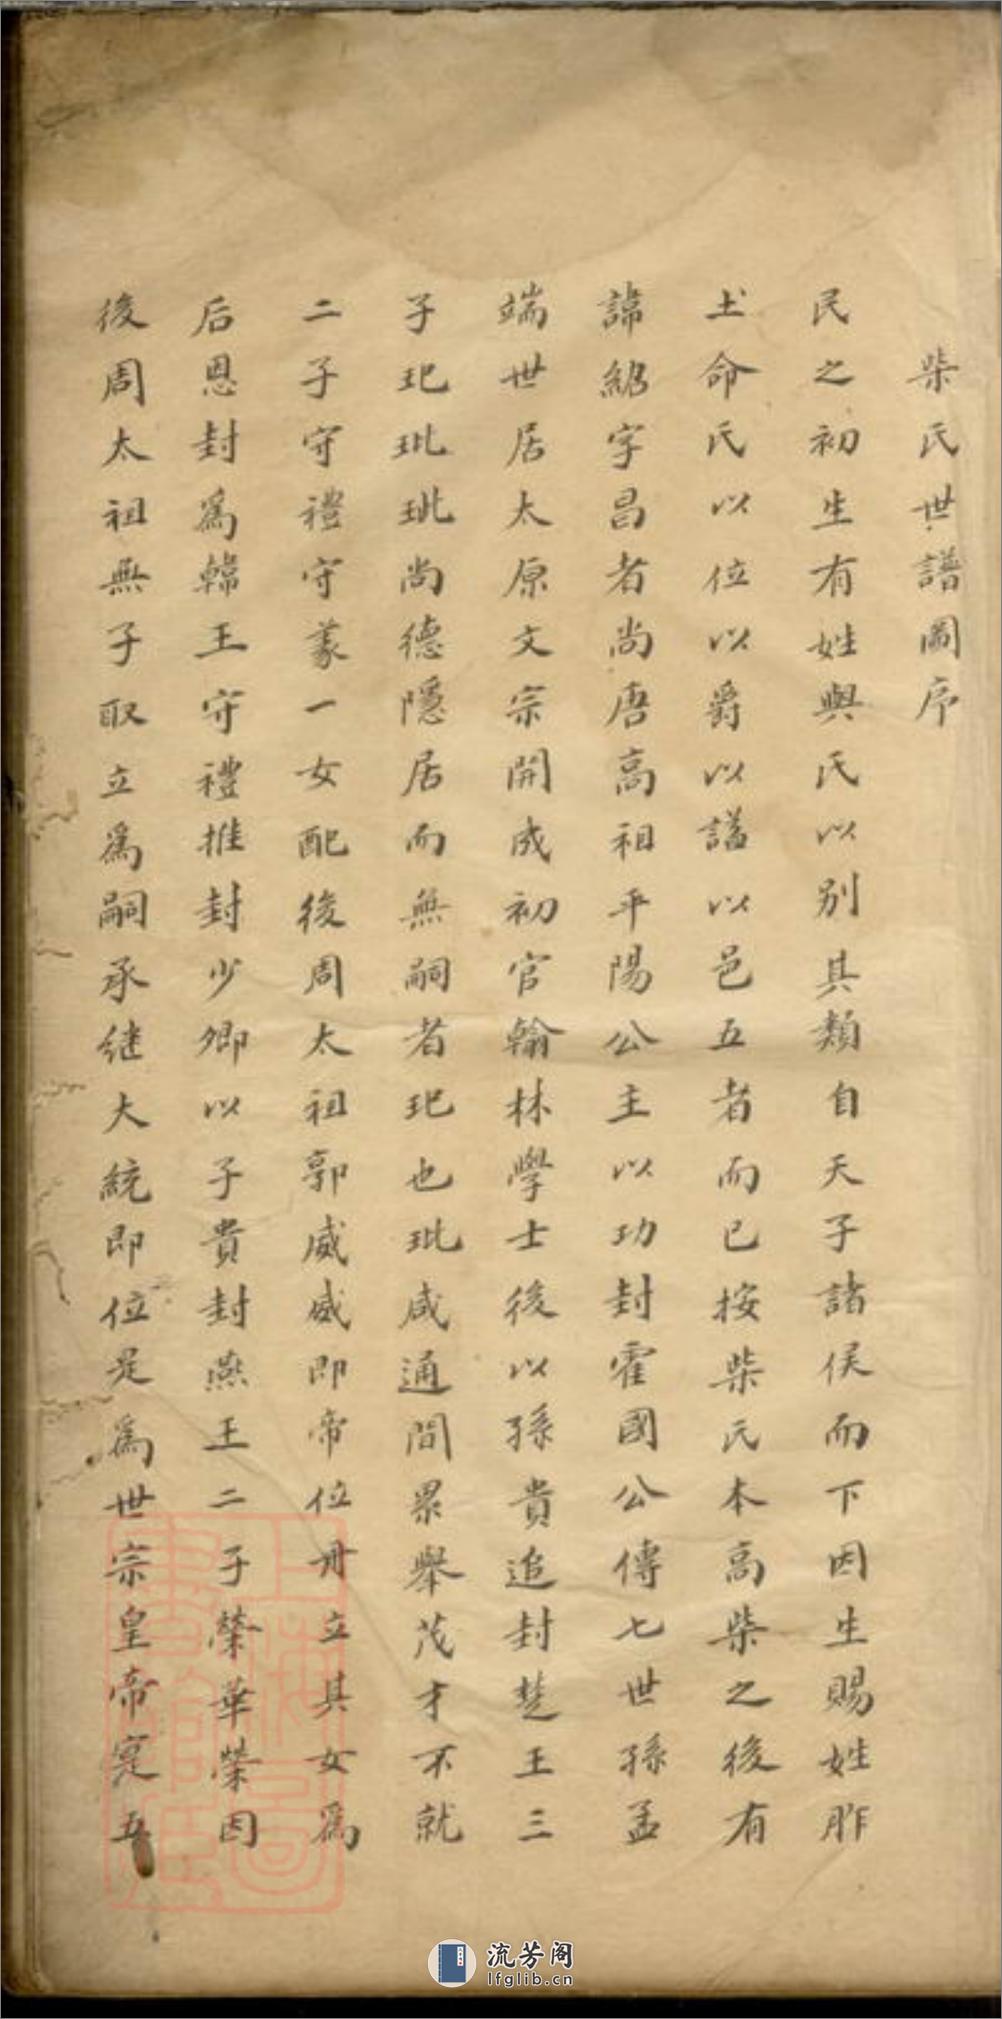 柴氏世譜圖序
民之初生有姓與氏以別其類自天子諸侯而下因生賜姓胙
土命氏以位以爵以諡以邑五者而已按柴氏本高柴之後有
諱紹字昌者尚唐高祖平陽公主以功封霍國公傳七世孫孟
端世居太原文宗開成初官翰林學士後以孫貴追封楚王三
子玘玭珖尚德隱居而無嗣者玘也玭咸通間累舉茂才不就
二子守禮守義一女配後周太祖郭威威即帝位冊立其女為
后恩封為韓王守禮推封少卿以子貴封燕王二子榮華榮因
後周太祖無子取立為嗣承继大統即位是為世宗皇帝寔五
上海圖書館藏
流芳阁
lfglib.cn